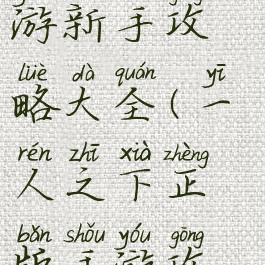 游新手攻
lüè dà quán yī
略大全(一
rén zhī xià zhèng
人之下正
bǎn shǒu yóu gōng
版手游攻